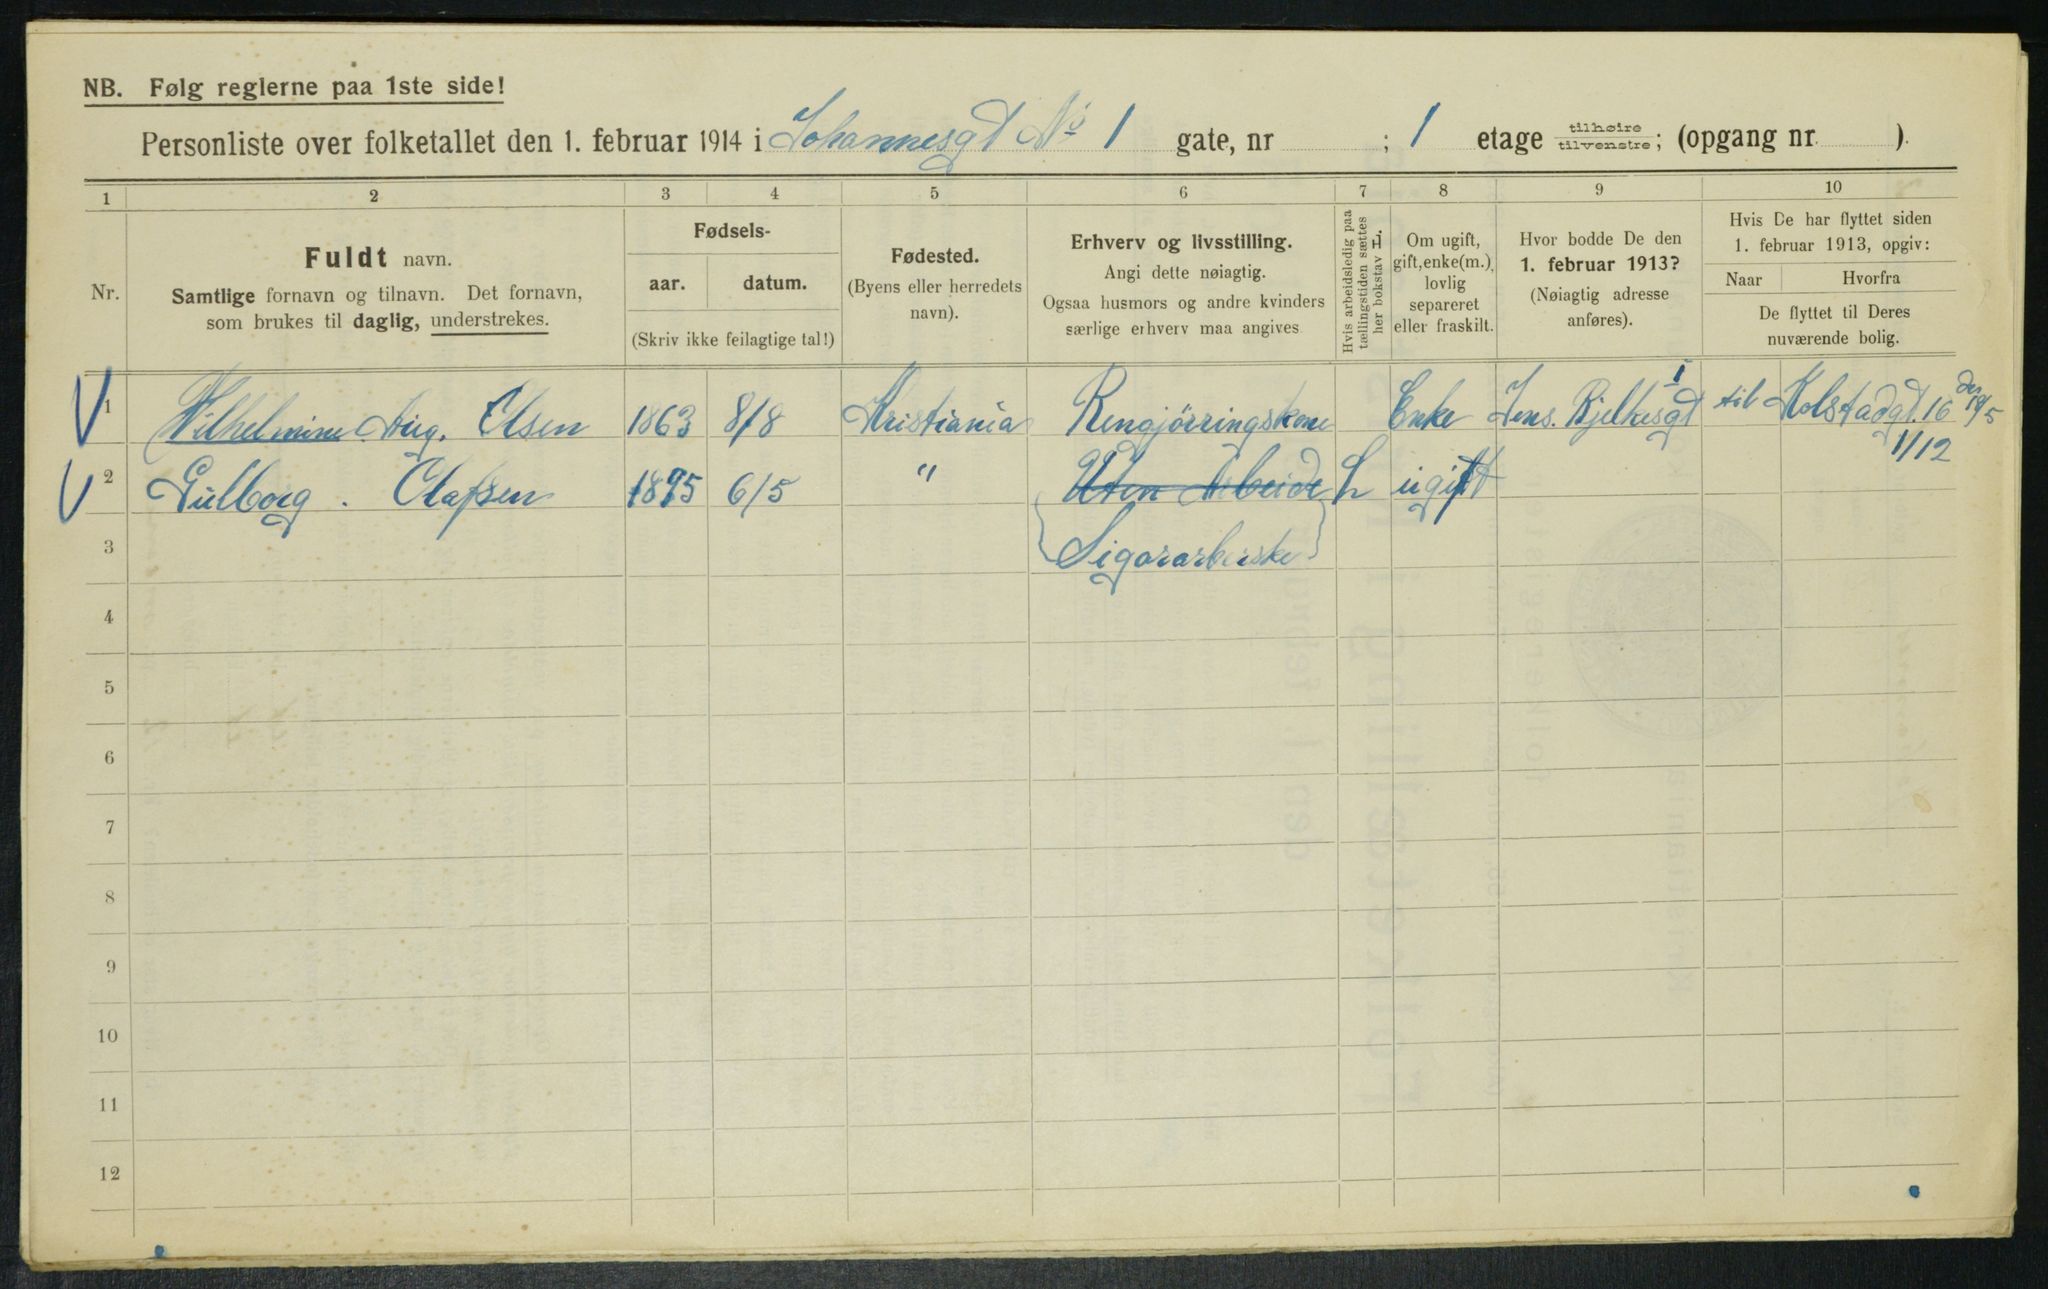 NB. Følg reglerne paa 1ste side!
Personliste over folketallet den 1. februar 1914 i Johannesgt No 1 gate, nr ; 1 etage tilhøire tilvenstre; (opgang nr ).
1 2 3 4 5 6 7 8 9 10
Nr.
Fuldt navn.
Samtlige fornavn og tilnavn. Det fornavn,
som brukes til daglig, understrekes.
Fødsels-
aar. datum.
(Skriv ikke feilagtige tal!)
Fødested.
(Byens eller herredets
navn).
Erhverv og livsstilling.
Angi dette nøiagtig.
Ogsaa husmors og andre kvinders
særlige erhverv maa angives
Hvis arbeidsledig paa
tællingstiden sættes
her bokstav L.
Om ugift,
gift, enke(m.),
lovlig
separeret
eller fraskilt.
Hvor bodde De den
1. februar 1913?
(Nøiagtig adresse
anføres).
Hvis De har flyttet siden
1. februar 1913, opgiv:
Naar Hvorfra
De flyttet til Deres
nuværende bolig.
1 Wilhelmine Aug. Olsen 1863 8/8 Kristiania Rengjörringskone Enke Jens. Bjelkesgt 1 til Kolstadgt. 16 den 19/5
1/12
2 Gulborg. Olafsen 1895 6/5 " Uten Arbeide L ugift
3 Sigararberske
4
5
6
7
8
9
10
11
12